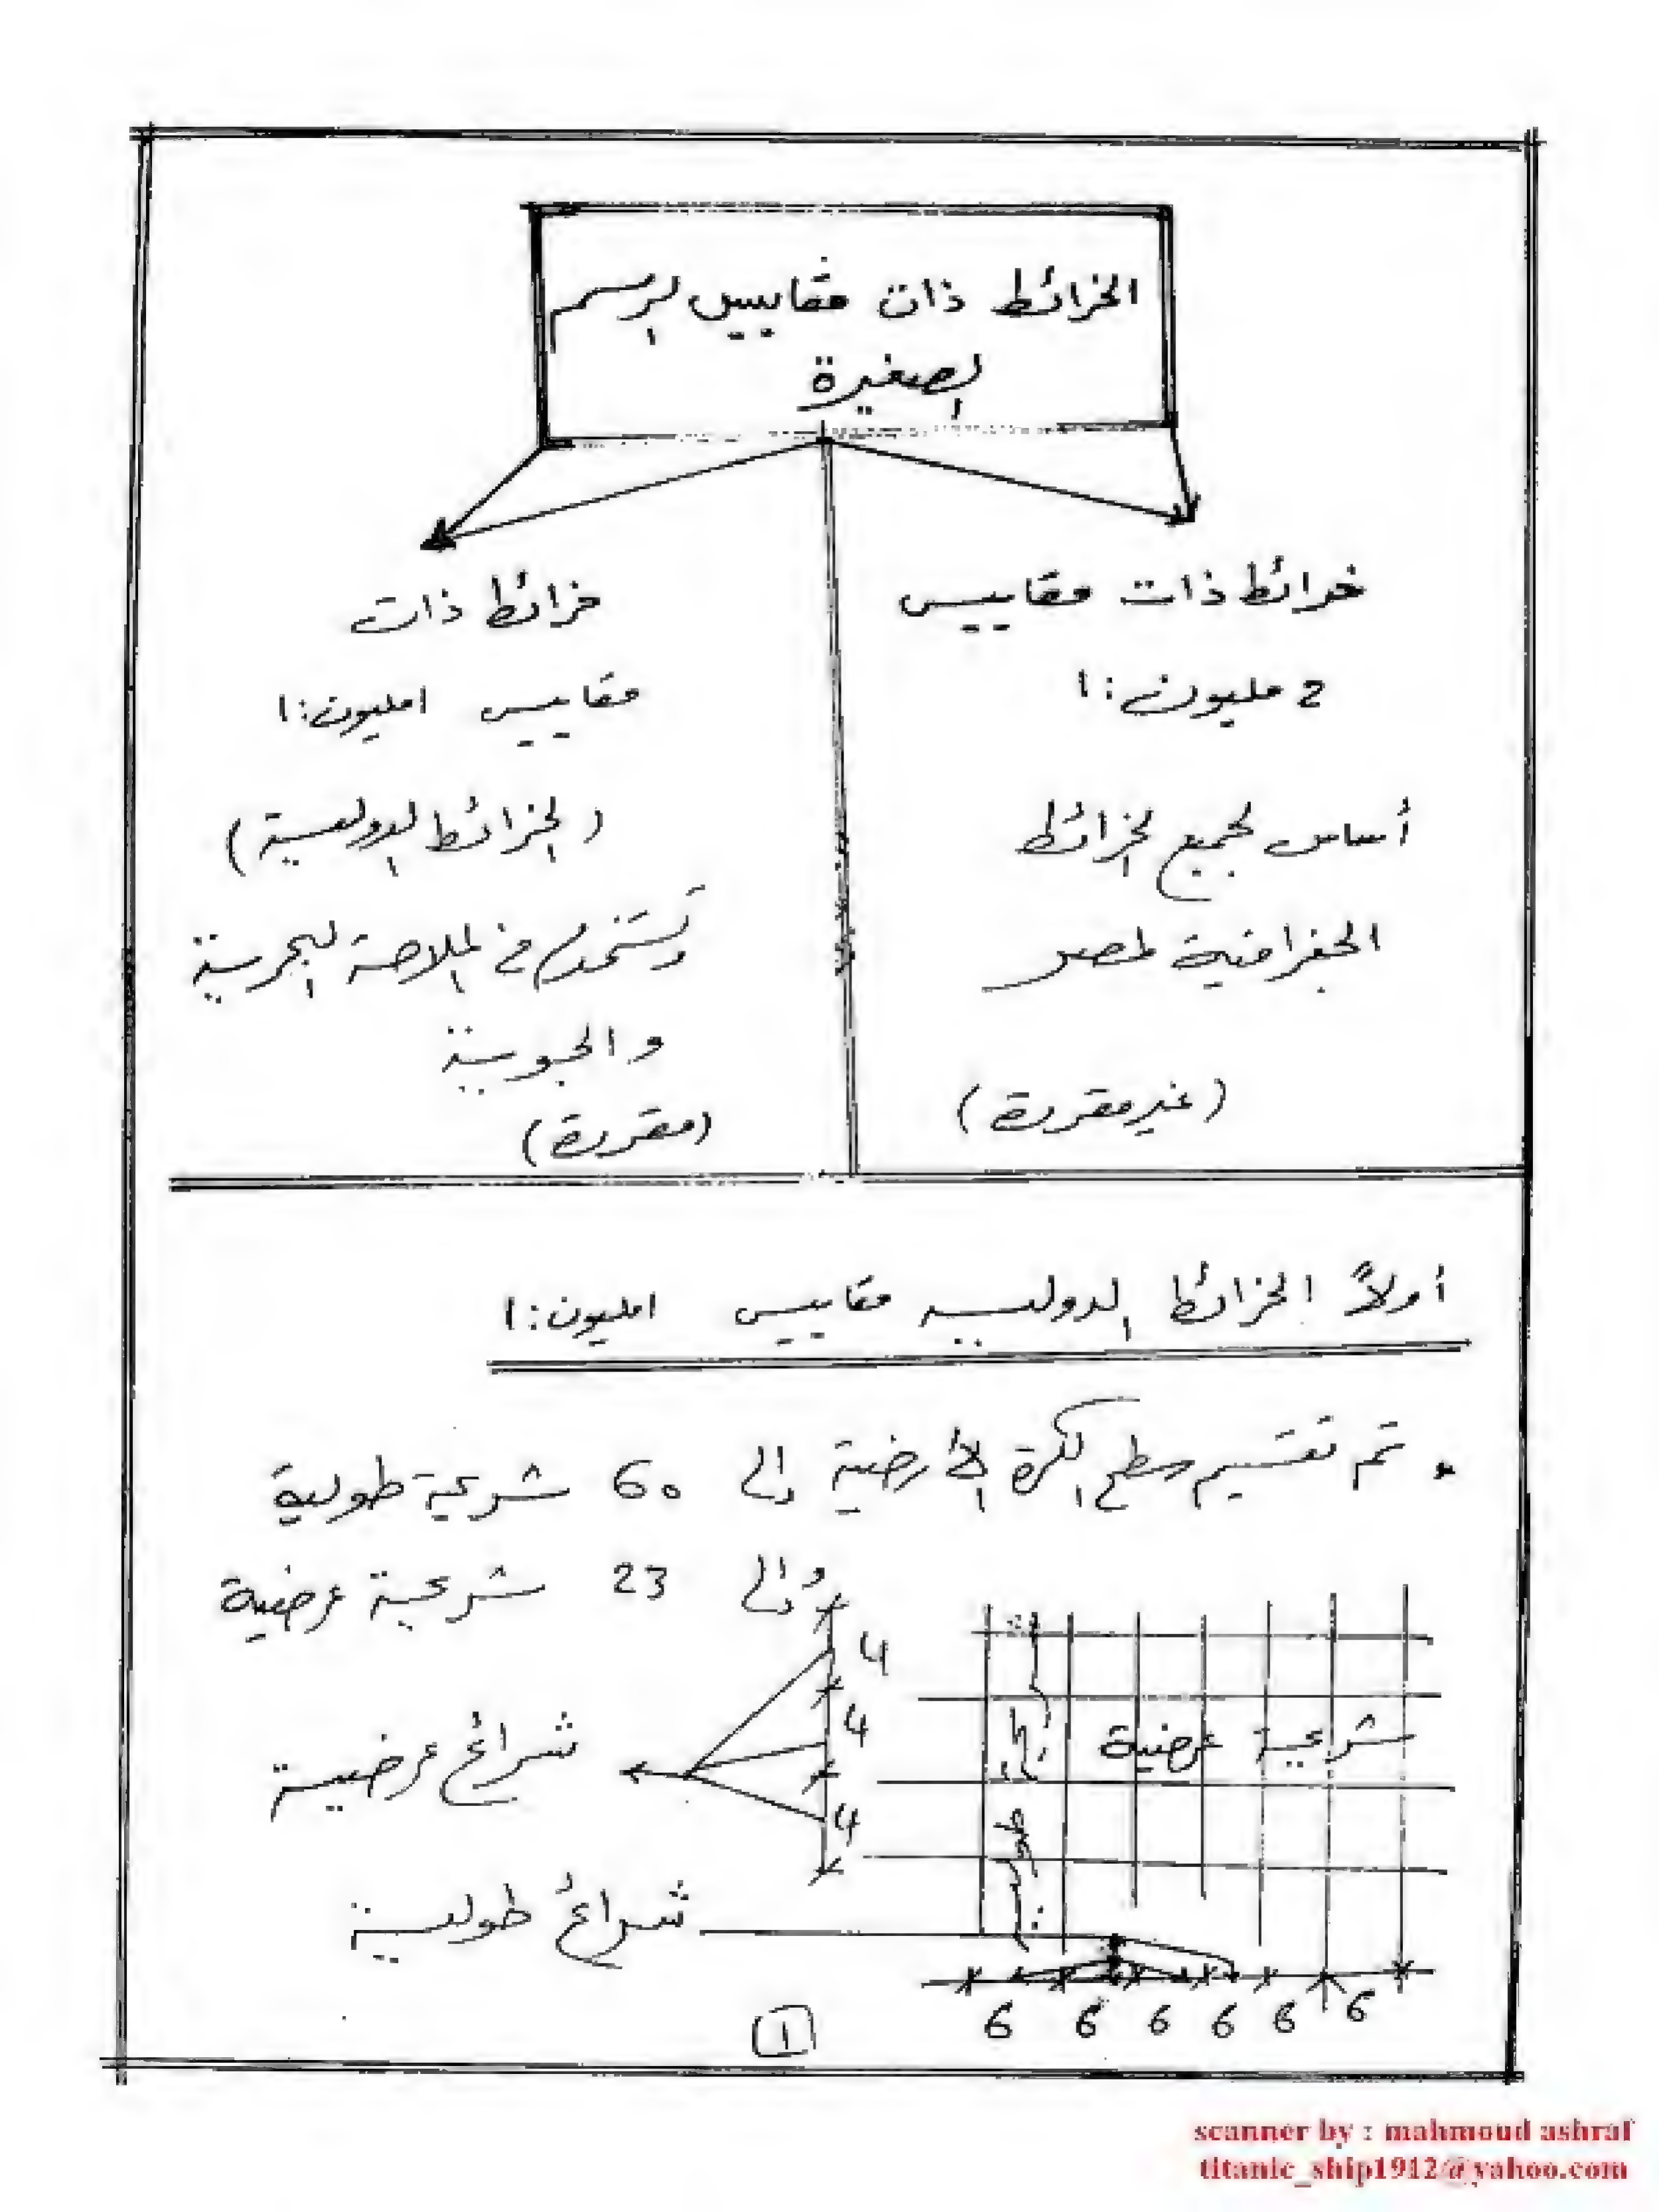 الخرائط ذات مقاييس الرسم
الصغيرة
خرائط ذات مقاييس
2 مليون : 1
أساس لجميع الخرائط
الجغرافية لمصر
(غير مقررة)
خرائط ذات
مقاييس 1 مليون : 1
(الخرائط الدولية)
وتستخدم في الملاحة البحرية
والجوية
(مقررة)
أولاً الخرائط الدولية مقاييس 1 مليون : 1
• تم تقسيم سطح الكرة الأرضية إلى 60 شريحة طولية
وإلى 23 شريحة عرضية
4
4
4
شرائح عرضية
شرائح طولية
شريحة عرضية
شريحة طولية
6 6 6 6 6 6
1
scanner by : mahmoud ashraf
titanic_ship1912@yahoo.com